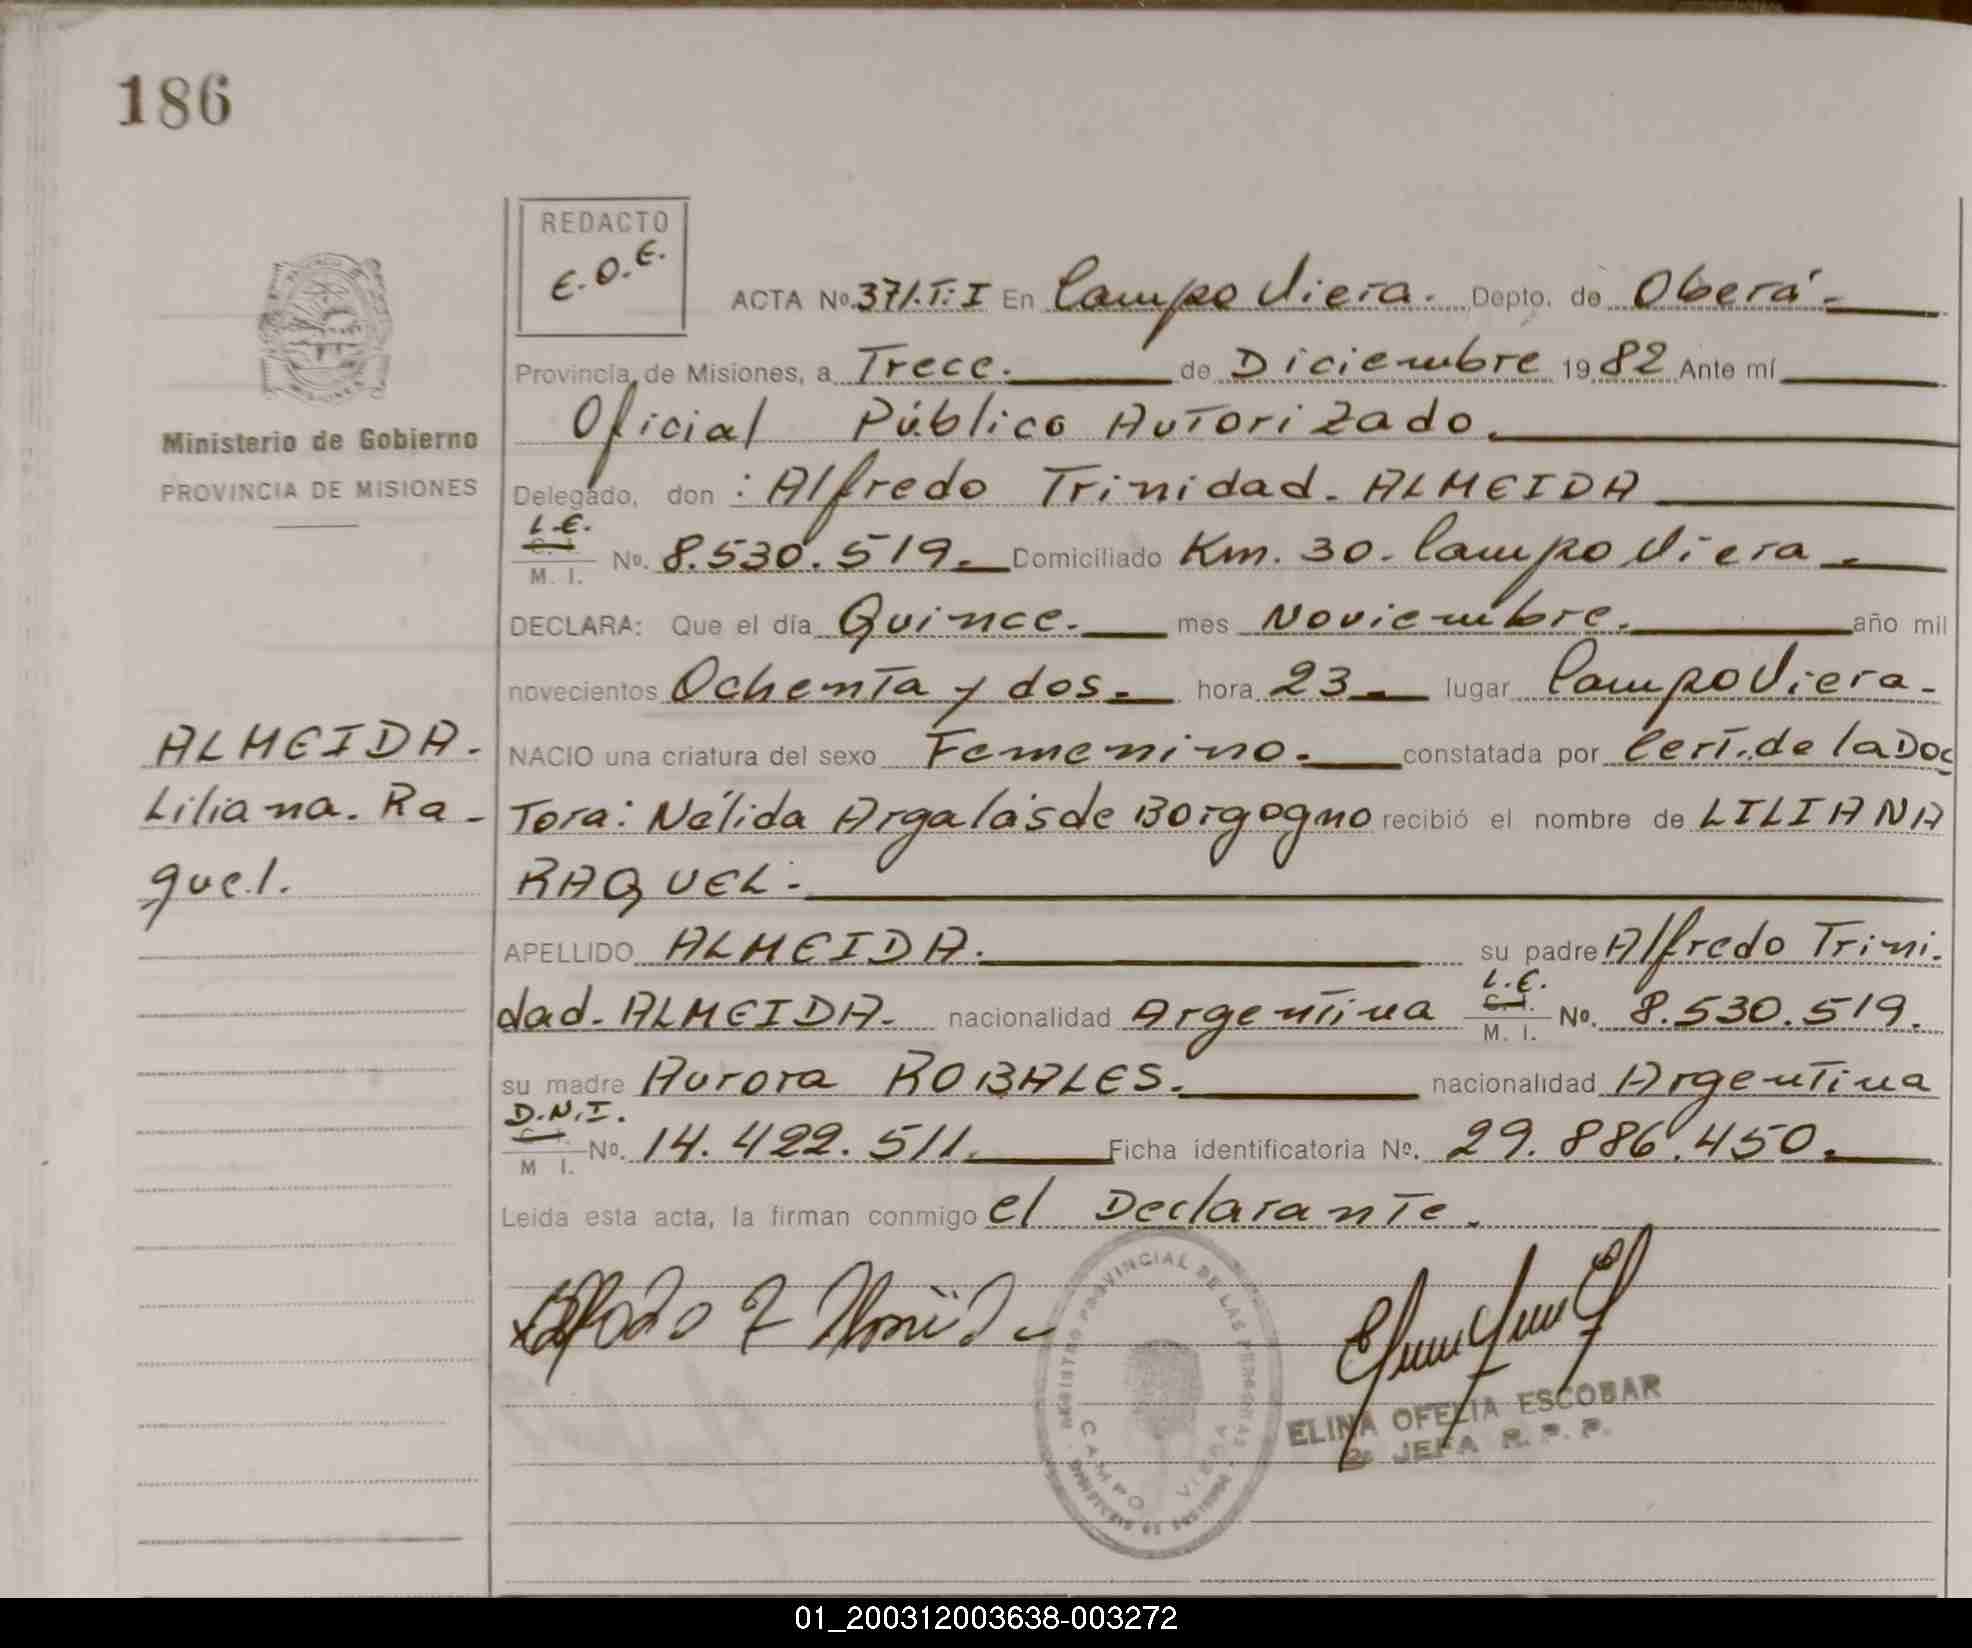 186
REDACTO
E.O.E.
ACTA No. 371.T:I En Campo Viera. Depto. de Oberá.-
Provincia de Misiones, a Trece. de Diciembre 1982 Ante mí
Ministerio de Gobierno
PROVINCIA DE MISIONES
Oficial Público Autorizado.
Delegado, don : Alfredo Trinidad. ALMEIDA
L.E.
C. I.
M. I. No. 8.530.519.- Domiciliado Km. 30. Campo Viera.
DECLARA: Que el día Quince. mes Noviembre. año mil
novecientos Ochenta y dos.- hora 23.- lugar Campo Viera.-
NACIO una criatura del sexo Femenino. constatada por Cert. de la Doc
Tora: Nélida Argalás de Borgogno recibió el nombre de LILIANA
RAQUEL.-
ALMEIDA.
Liliana. Ra-
quel.
APELLIDO ALMEIDA. su padre Alfredo Trini-
dad. ALMEIDA. nacionalidad Argentina L.E. C. I. M. I. No. 8.530.519.
su madre Aurora ROBALES. nacionalidad Argentina
D.N.I.
M I. No. 14.422.511. Ficha identificatoria No. 29.886.450.
Leida esta acta, la firman conmigo el Declarante.
REGISTRO PROVINCIAL DE LAS PERSONAS
CAMPO VIERA
ELINA OFELIA ESCOBAR
JEFA R.P.P.
01_200312003638-003272